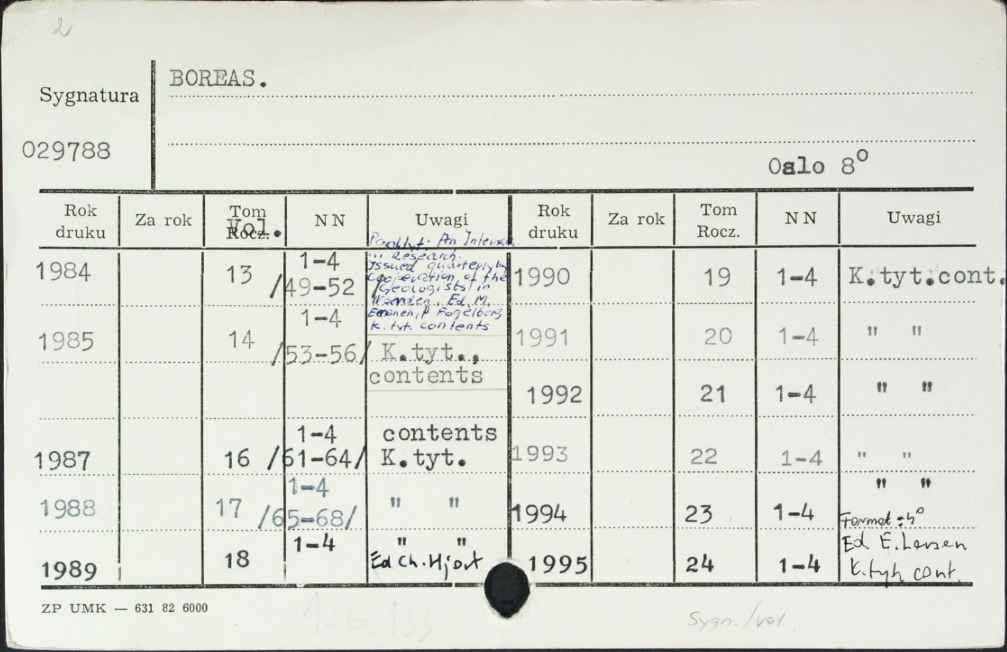 2
BOREAS.
Sygnatura
029788
Oslo 8⁰
Rok druku Za rok Tom Rocz. Vol. NN Uwagi Rok druku Za rok Tom Rocz. NN Uwagi
1984 13 1-4 /49-52/
Issued quarterly by
cooperation of the
Geologists in
Ed. M.
K. tyt. contents
1990 19 1-4 K.tyt.cont.
1985 14 1-4 /53-56/ K.tyt., contents
1991 20 1-4 " "
1992 21 1-4 " "
1987 16 1-4 /61-64/ contents K.tyt.
1993 22 1-4 " "
1988 17 1-4 /65-68/ " "
1994 23 1-4 " " Format : 4⁰
1989 18 1-4 " " Ed Ch. Hjort
1995 24 1-4 Ed E. Larsen K.tyt. cont.
ZP UMK — 631 82 6000
Sygn./vol.